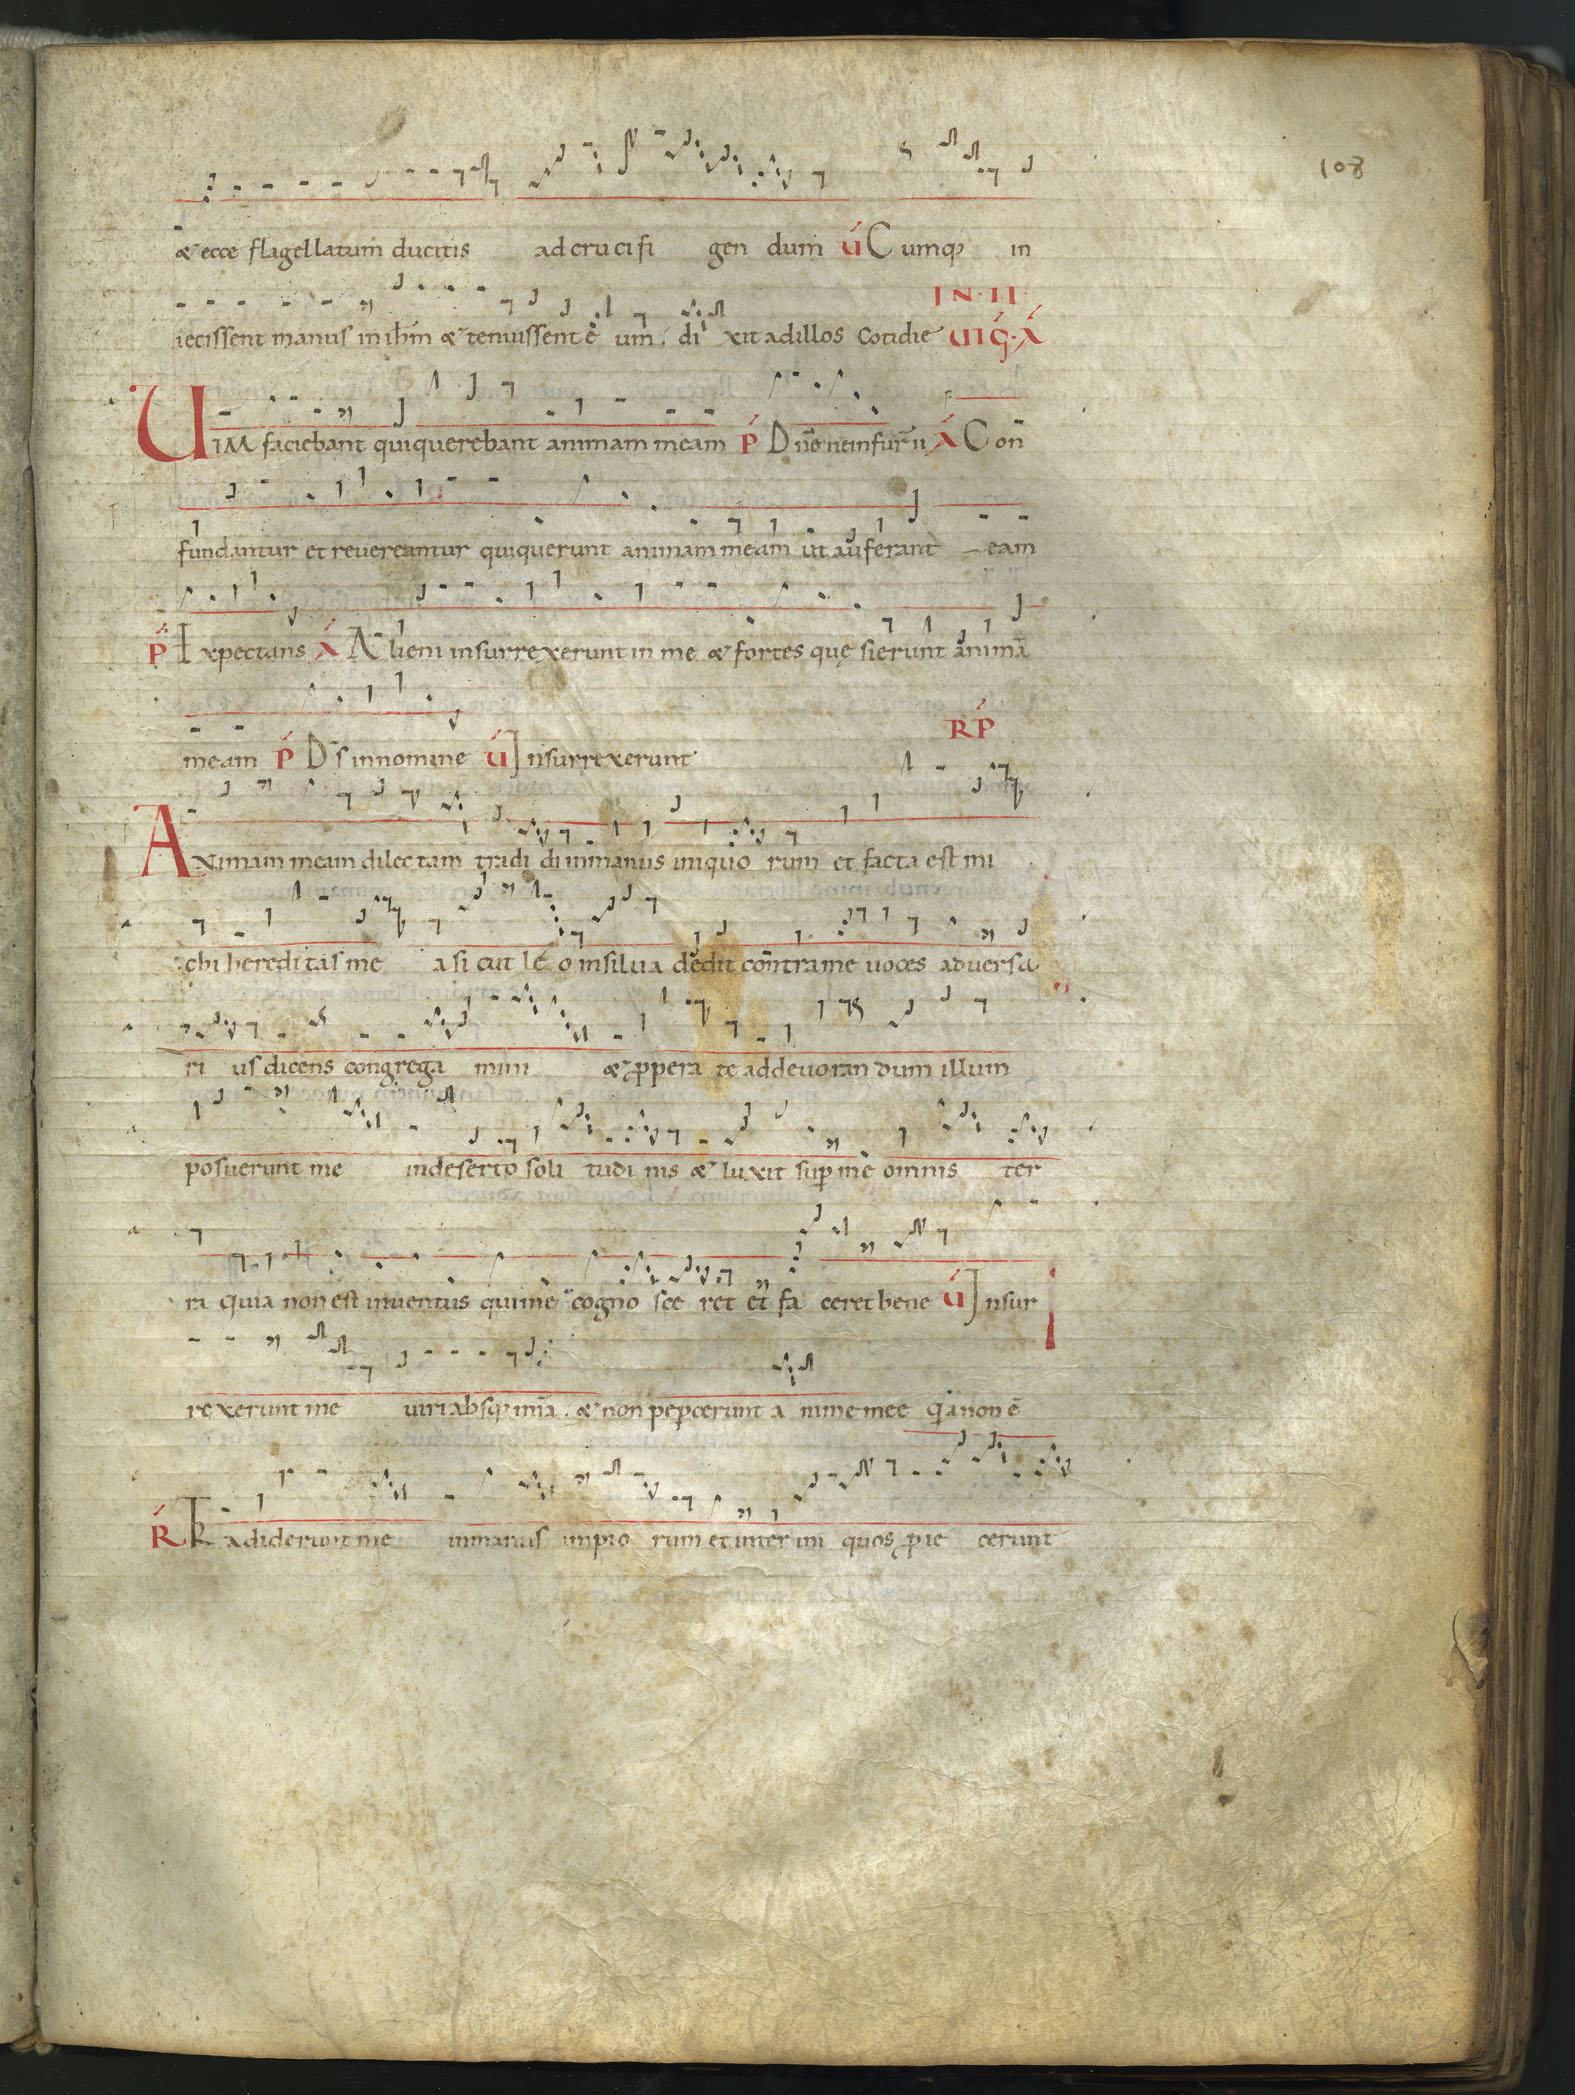 108
& ecce flagellatum ducitis ad crucifi gen dum V́ Cumq; in
IN · II ·
iecissent manus in ihm̄ & tenuissent eum . di xit ad illos cotidie VIG · Á
VIM faciebant qui querebant animam meam Ṕ Dnē ne in fur̄ ii Á Con
fundantur et revereantur qui querunt animam meam ut auferant eam
Ṕ Expectans Á Alieni insurrexerunt in me & fortes quę sierunt animā
meam Ṕ Ds̄ in nomine V́ Insurrexerunt RṔ
ANimam meam dilectam tradi di in manus iniquo rum et facta est mi
chi hereditas me a sicut leo in silva dedit contra me voces adversa
ri us dicens congrega mini & ꝓpera te ad devoran dum illum
posuerunt me in deserto soli tudi nis & luxit suꝑ me omnis ter
ra quia non est inventus qui me cogno sce ret et fa ceret bene V́ Insur
rexerunt me viri absq; mīa . & non peꝑcerunt a nime mee q̄a non ē
Ŕ Tradiderunt me in manus impio rum et inter ini quos ꝓie cerunt